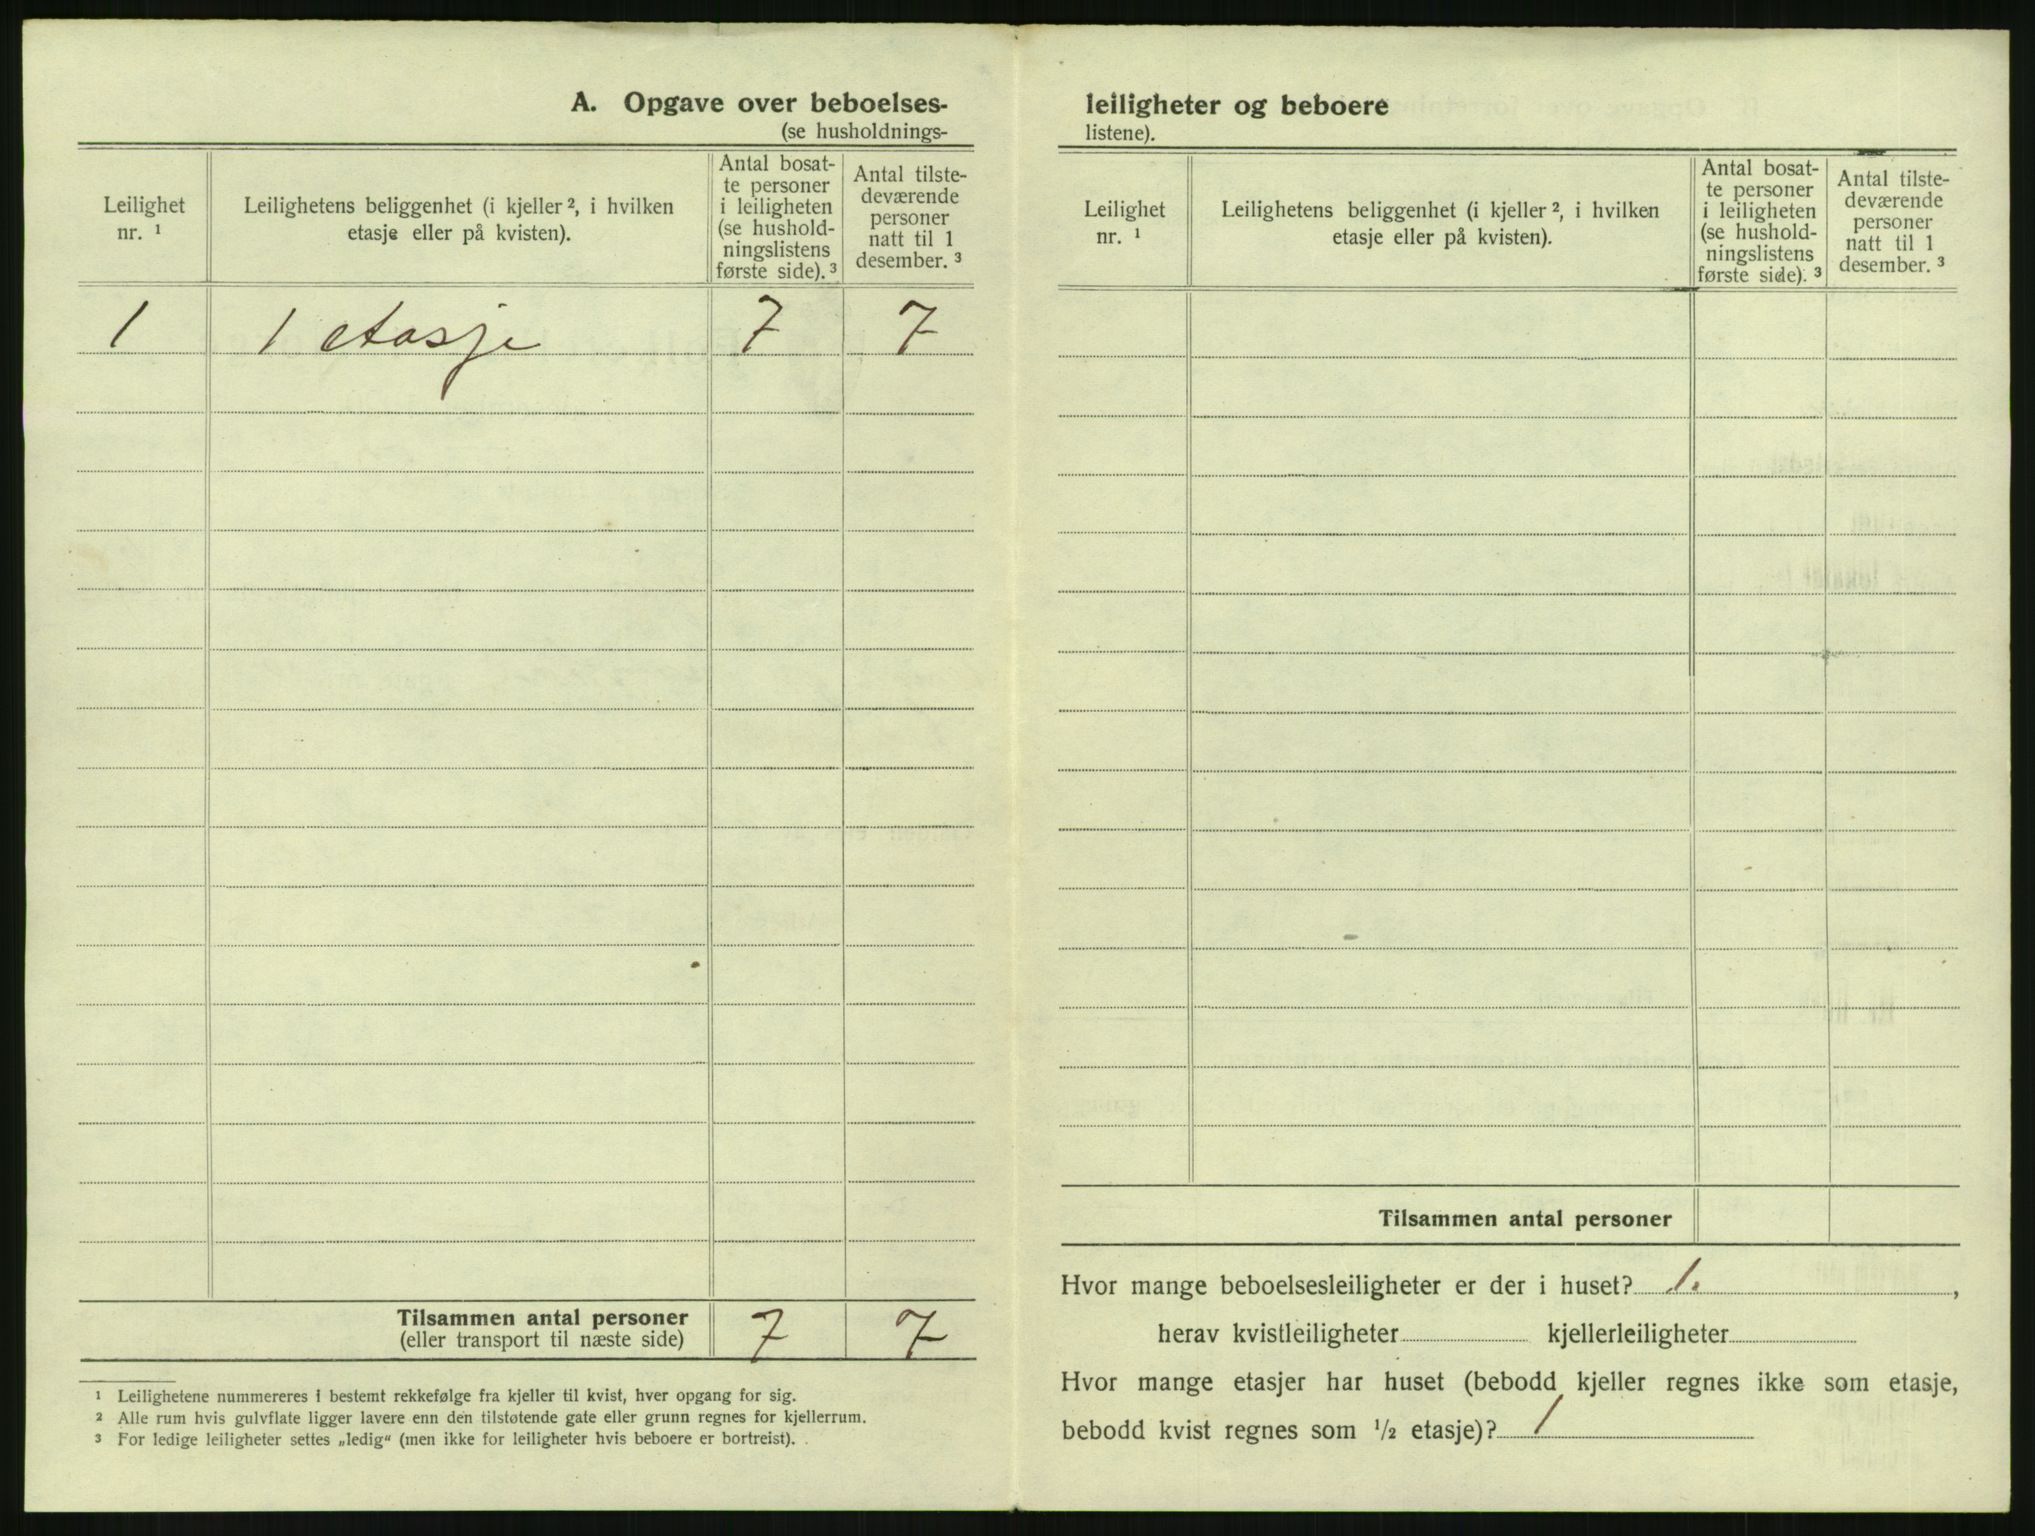 A. Opgave over beboelses-
(se husholdnings-
Leilighet
nr. ¹
Leilighetens beliggenhet (i kjeller ², i hvilken
etasje eller på kvisten).
Antal bosat-
te personer
i leiligheten
(se hushold-
ningslistens
første side). ³
Antal tilste-
deværende
personer
natt til 1
desember. ³
1 1 etasje 7 7
Tilsammen antal personer
(eller transport til næste side) 7 7
¹ Leilighetene nummereres i bestemt rekkefølge fra kjeller til kvist, hver opgang for sig.
² Alle rum hvis gulvflate ligger lavere enn den tilstøtende gate eller grunn regnes for kjellerrum.
³ For ledige leiligheter settes „ledig“ (men ikke for leiligheter hvis beboere er bortreist).
leiligheter og beboere
listene).
Leilighet
nr. ¹
Leilighetens beliggenhet (i kjeller ², i hvilken
etasje eller på kvisten).
Antal bosat-
te personer
i leiligheten
(se hushold-
ningslistens
første side). ³
Antal tilste-
deværende
personer
natt til 1
desember. ³
Tilsammen antal personer
Hvor mange beboelsesleiligheter er der i huset? 1. ,
herav kvistleiligheter kjellerleiligheter
Hvor mange etasjer har huset (bebodd kjeller regnes ikke som etasje,
bebodd kvist regnes som ½ etasje)? 1